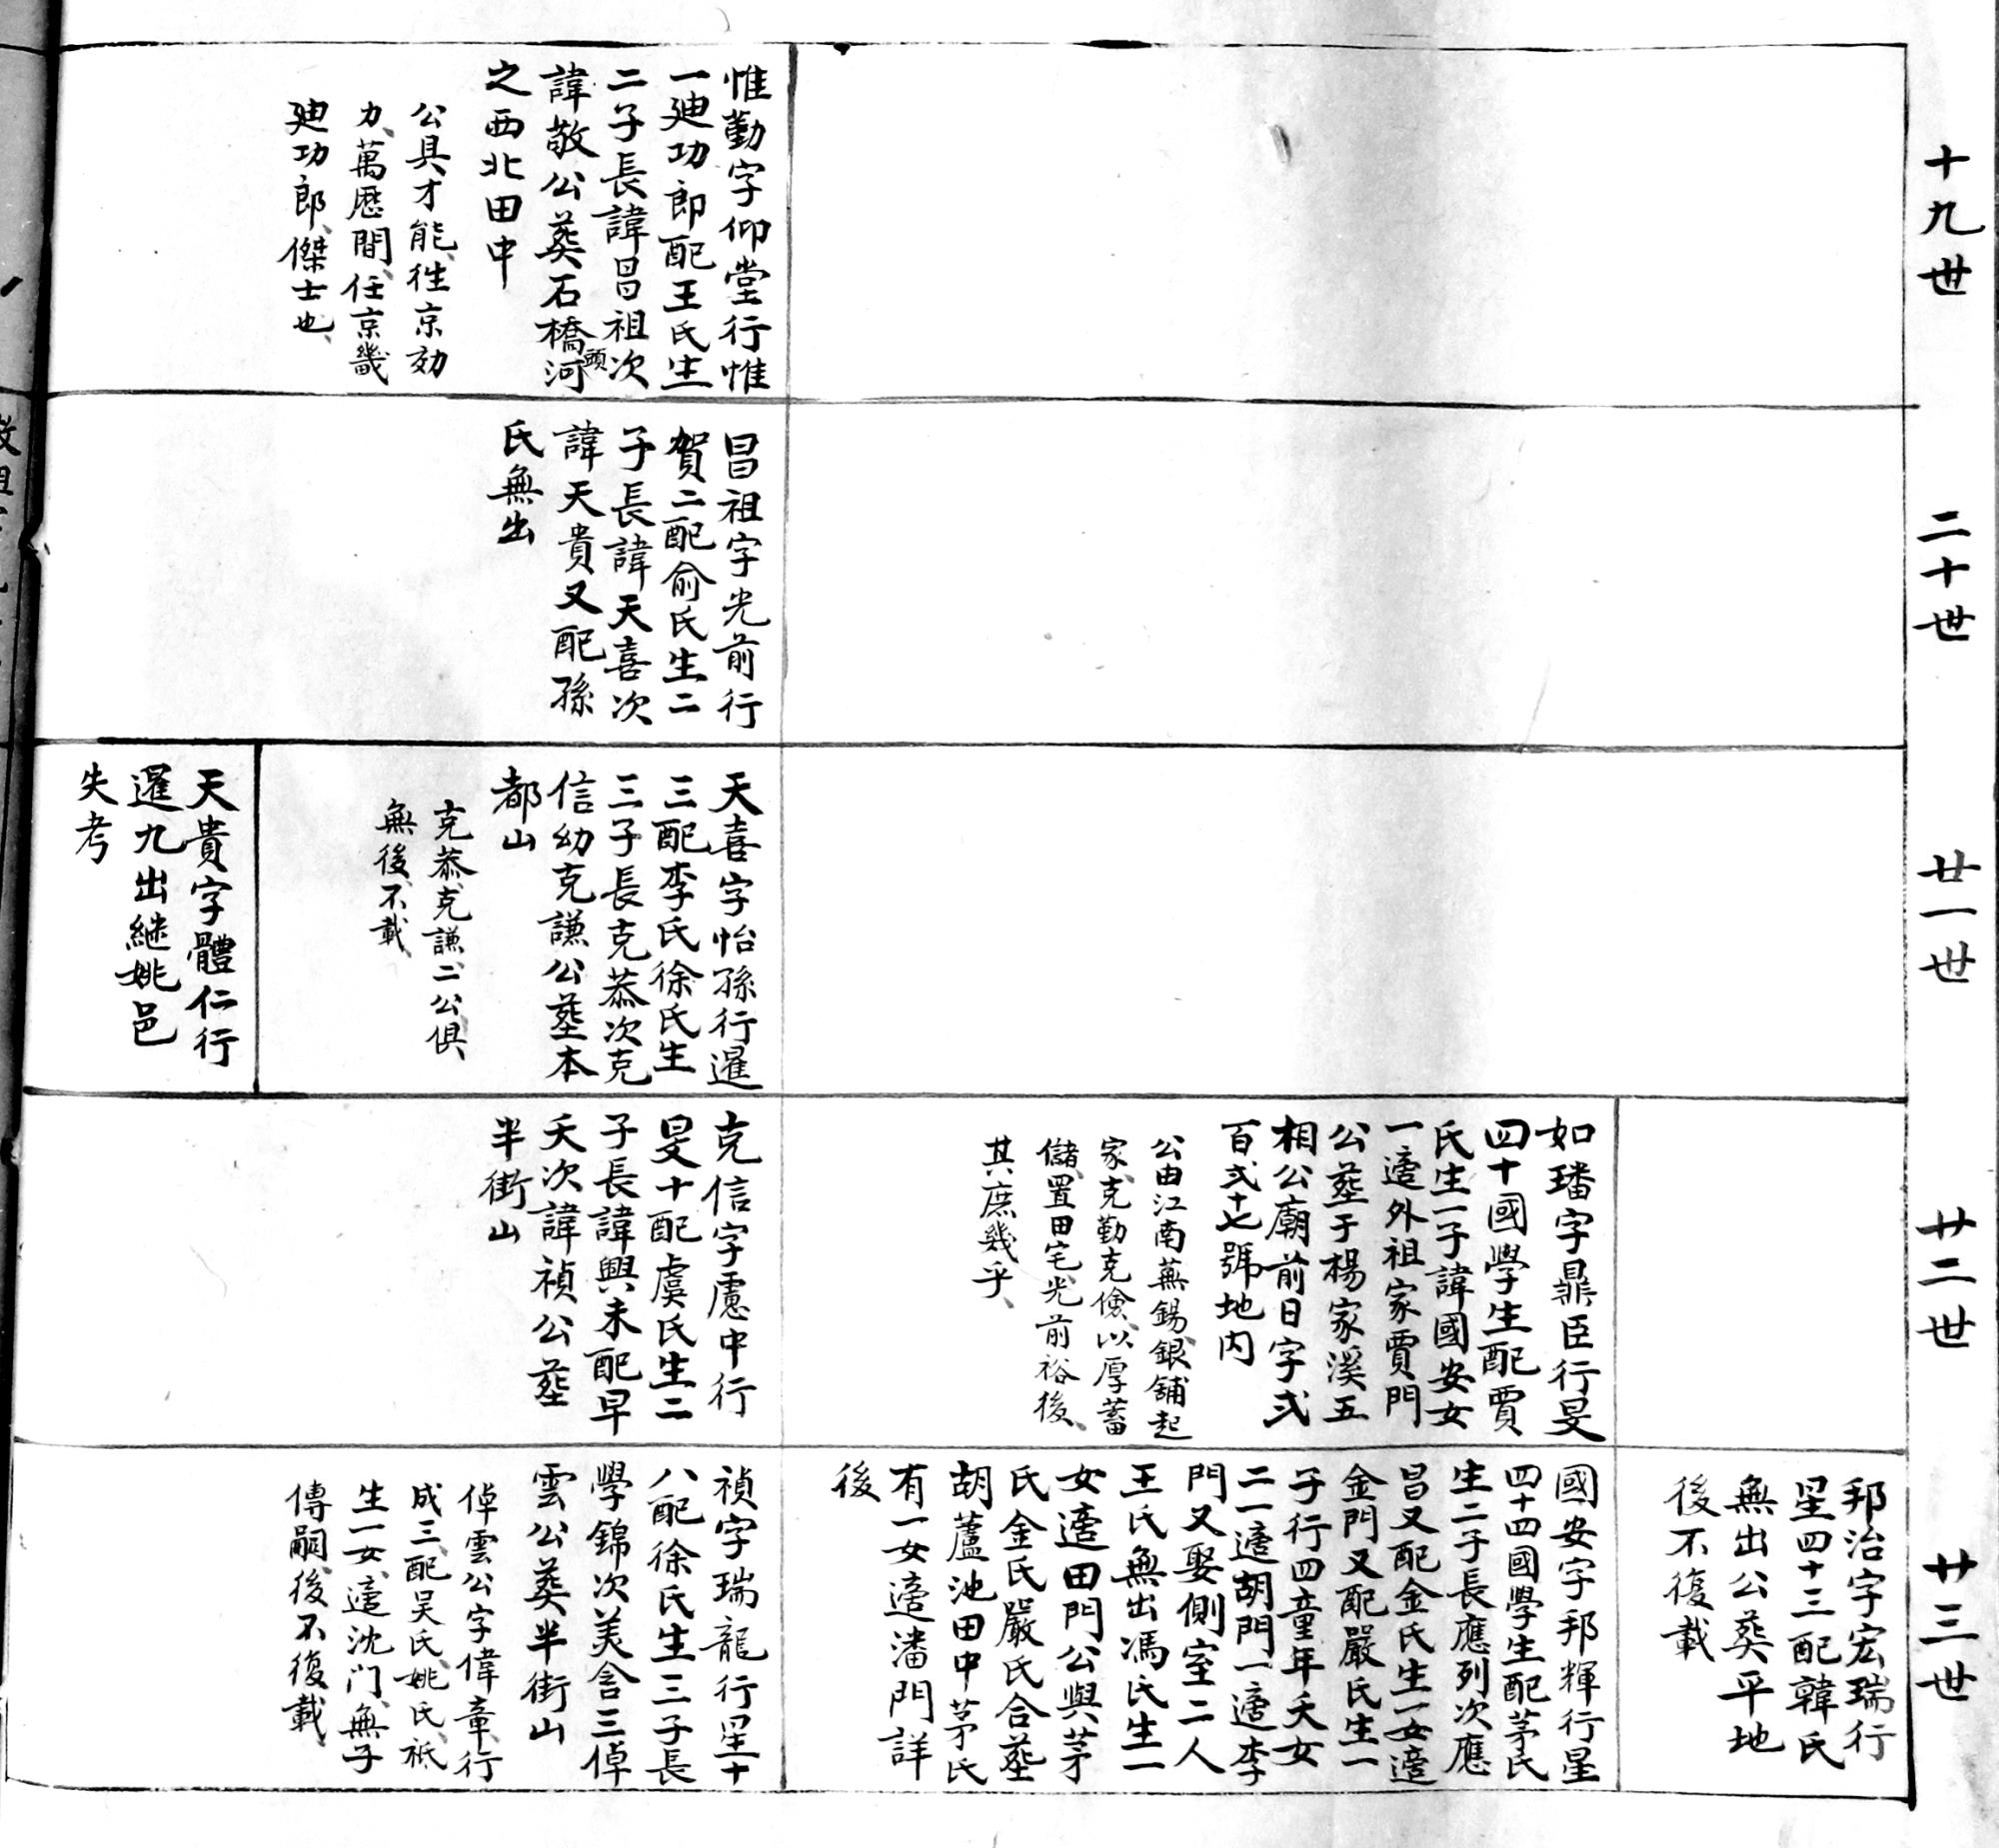 十九世
惟勤字仰堂行惟
一廸功郎配王氏生
二子長諱昌祖次
諱敬公葬石橋頭河
之西北田中
公具才能、徃京効
力、萬歷間、任京畿
廸功郎、傑士也、
二十世
昌祖字光前行
賀二配俞氏生二
子長諱天喜次
諱天貴又配孫
氏無出
廿一世
天喜字怡孫行暹
三配李氏徐氏生
三子長克恭次克
信幼克謙公塟本
都山
克恭、克謙、二公俱、
無後、不載、
天貴字體仁行
暹九出継姚邑
失考
廿二世
如璠字鼎臣行旻
四十國學生配賈
氏生一子諱國安女
一適外祖家賈門
公塟于楊家溪五
相公廟前日字弍
百弍十七號地内
公由江南蕪錫、銀舖起
家、克勤克儉、以厚蓄
儲、置田宅、光前裕後、
其庶幾乎、
克信字慮中行
旻十配虞氏生二
子長諱興未配早
夭次諱禎公塟
半街山
廿三世
邦治字宏瑞行
星四十三配韓氏
無出公葬平地
後不復載
國安字邦輝行星
四十四國學生配茅氏
生二子長應列次應
昌又配金氏生一女適
金門又配嚴氏生一
子行四童年夭女
二一適胡門一適李
門又娶側室二人
王氏無出馮氏生一
女適田門公與茅
氏金氏嚴氏合塟
胡蘆池田中茅氏
有一女適潘門詳
後
禎字瑞龍行星十
八配徐氏生三子長
學錦次美含三倬
雲公葬半街山
倬雲公字偉章、行
成三、配吴氏、姚氏、祇
生一女、適沈门、無子
傳嗣、後不復載、